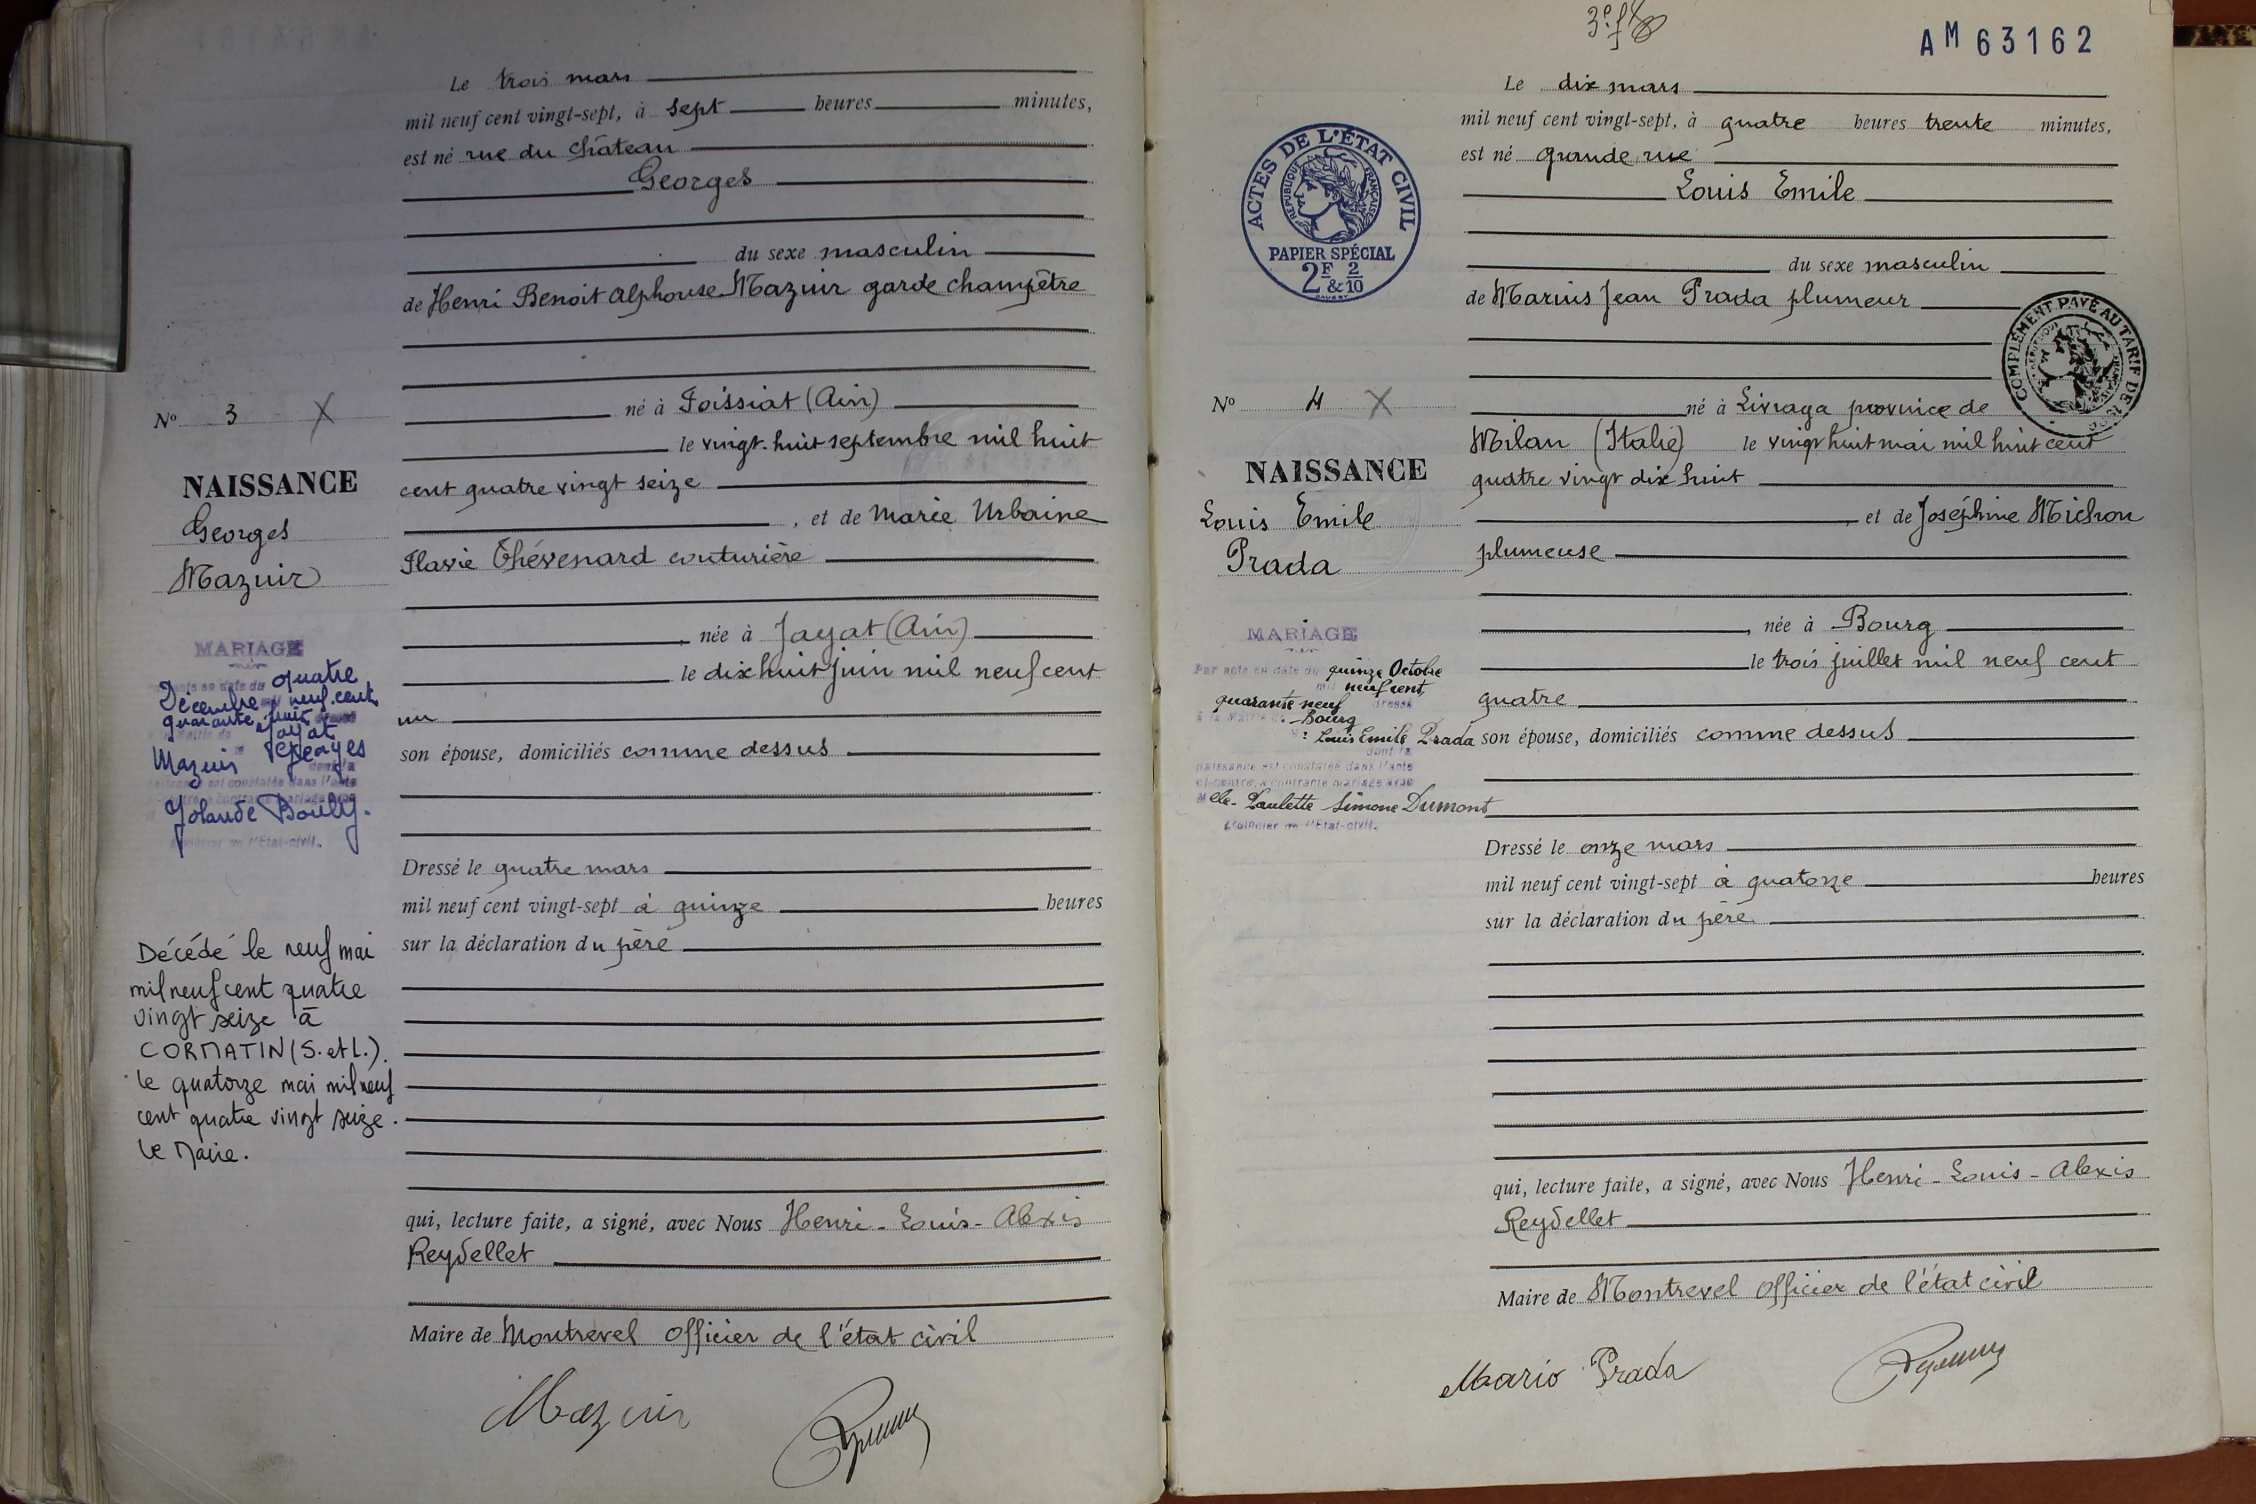 Le trois mars
mil neuf cent vingt-sept, à sept heures minutes,
est né rue du château
Georges
du sexe masculin
de Henri Benoit Alphonse Mazuir garde champêtre
né à Foissiat (Ain)
le vingt-huit septembre mil huit
cent quatre vingt seize
, et de Marie Urbaine
Flavie Thévenard couturière
, née à Jayat (Ain)
le dix huit juin mil neuf cent
un
son épouse, domiciliés comme dessus
Dressé le quatre mars
mil neuf cent vingt-sept à quinze heures
sur la déclaration du père
qui, lecture faite, a signé, avec Nous Henri-Louis-Alexis
Reydellet
Maire de Montrevel officier de l'état civil
Mazuir
No 3 X
NAISSANCE
Georges
Mazuir
MARIAGE
quatre
Décembre neuf cent
quarante huit
Jayat
Mazuir Georges
Yolande Bouly.
l'Etat-civil.
Décédé le neuf mai
mil neuf cent quatre
vingt seize à
CORMATIN (S. et L.).
le quatorze mai mil neuf
cent quatre vingt seize.
Le Maire.
AM 63162
Le dix mars
mil neuf cent vingt-sept, à quatre heures trente minutes,
est né grande rue
Louis Emile
du sexe masculin
de Marius Jean Prada plumeur
né à Livraga province de
Milan (Italie) le vingt huit mai mil huit cent
quatre vingt dix huit
, et de Joséphine Michon
plumeuse
, née à Bourg
le trois juillet mil neuf cent
quatre
son épouse, domiciliés comme dessus
Dressé le onze mars
mil neuf cent vingt-sept à quatorze heures
sur la déclaration du père
qui, lecture faite, a signé, avec Nous Henri-Louis-Alexis
Reydellet
Maire de Montrevel officier de l'état civil
Mario Prada
ACTES DE L'ÉTAT CIVIL
RÉPUBLIQUE FRANÇAISE
PAPIER SPÉCIAL
2F & 2/10
COMPLÉMENT PAYÉ AU TARIF DE
No 4 X
NAISSANCE
Louis Emile
Prada
MARIAGE
Par acte en date du quinze Octobre
mil neuf cent
quarante neuf dressé
à la Mairie de Bourg
Louis Emile Prada
dont la
naissance est constatée dans l'acte
ci-contre, a contracté mariage avec
Melle Paulette Simone Dumont
L'Officier de l'Etat-civil.